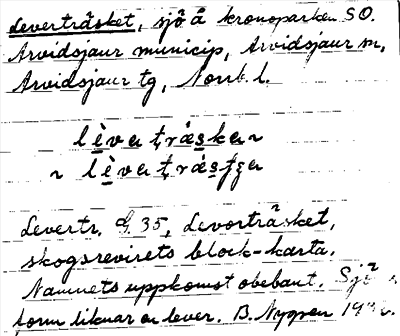 Levertråsket, sjö å kronoparken SO.
Arvidsjaur municip, Arvidsjaur sn,
Arvidsjaur tg, Norrb. l.
lèvatrá̀skan
~ lèvatrá̀sţɜa
Levertr. G. 35, Levorträsket,
skogsrevirets block-karta.
Namnets uppkomst obebant. Sjö
form liknar en lever. B. Nygren